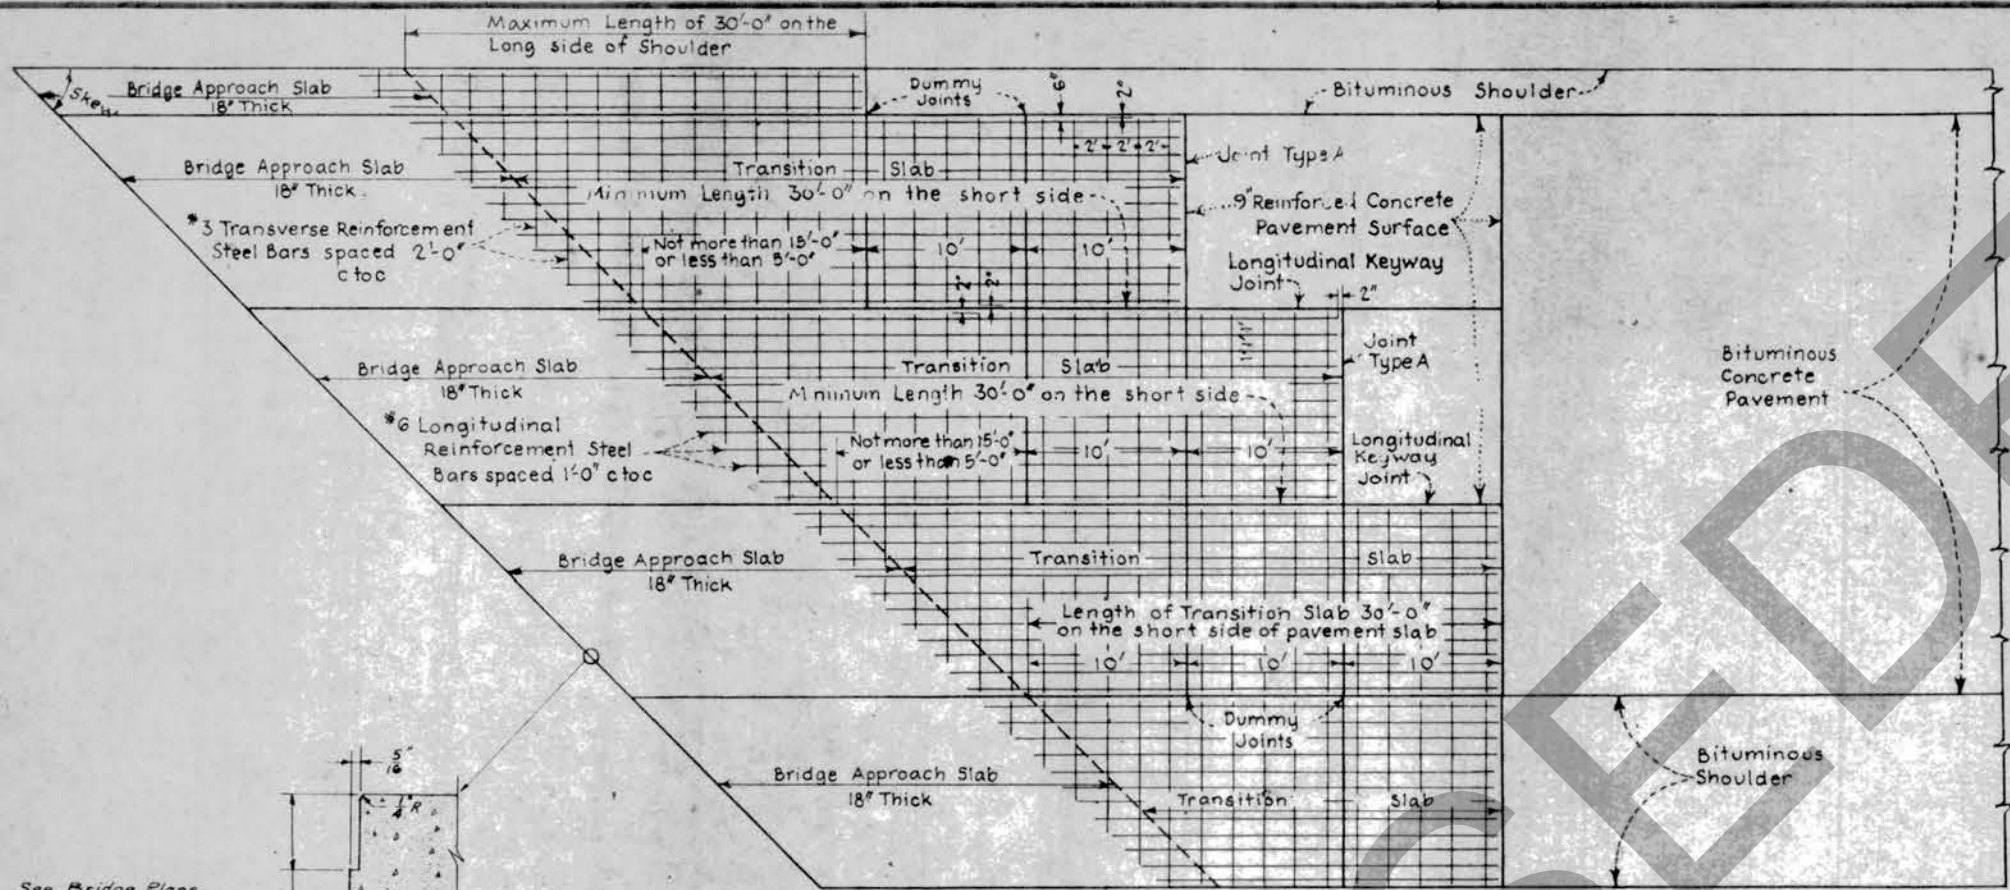 Maximum Length of 30'-0" on the
Long side of Shoulder
Skew
Bridge Approach Slab
18" Thick
Dummy
Joints
6"
2"
Bituminous Shoulder
2' 2' 2'
Bridge Approach Slab
18" Thick
Transition Slab
Minimum Length 30'-0" on the short side
Joint Type A
9" Reinforced Concrete
Pavement Surface
#3 Transverse Reinforcement
Steel Bars spaced 2'-0"
c to c
Not more than 15'-0"
or less than 5'-0"
10'
10'
Longitudinal Keyway
Joint
2"
2"
2"
Bridge Approach Slab
18" Thick
Transition Slab
Minimum Length 30'-0" on the short side
1' 1' 1'
Joint
Type A
Bituminous
Concrete
Pavement
#6 Longitudinal
Reinforcement Steel
Bars spaced 1'-0" c to c
Not more than 15'-0"
or less than 5'-0"
10'
10'
Longitudinal
Keyway
Joint
Bridge Approach Slab
18" Thick
Transition Slab
Length of Transition Slab 30'-0"
on the short side of pavement slab
10'
10'
10'
Dummy
Joints
Bituminous
Shoulder
5"
16
1"
4 R
Bridge Approach Slab
18" Thick
Transition Slab
See Bridge Plans